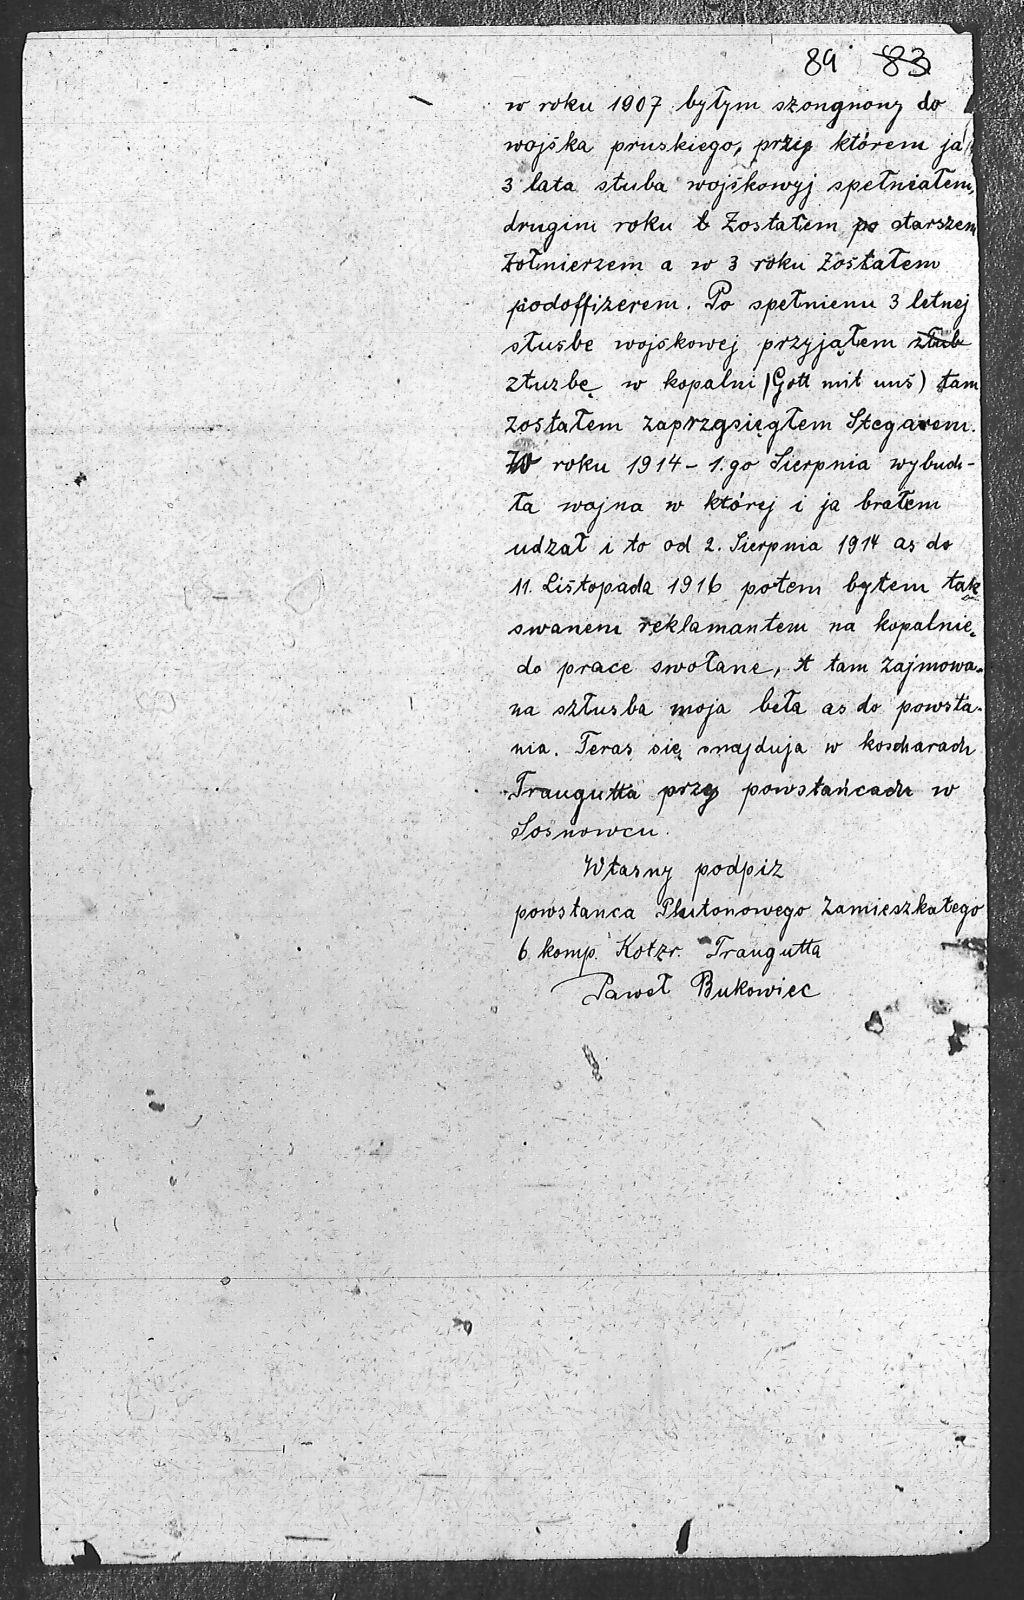 89 83
w roku 1907 byłym szongnony do
wojska pruskiego, przy którem ja
3 lata stuba wojskowyj spełniałem,
drugim roku t Zostałem po starszem
Żołnierzem a w 3 roku Zostałem
podoffizerem. Po spełnienu 3 letnej
stusbe wojskowej przyjąłem złub
złuzbę w kopalni (Gott mit uns) tam
zostałem zaprzgsięgłem Stegarem.
W roku 1914 - 1.go Sierpnia wybuch-
ła wojna w której i ja brałem
udzał i to od 2. Sierpnia 1914 as do
11. Listopada 1916 potem byłem tak
swanem reklamantem na kopalnię
do prace swołane, A tam zajmowa-
na szłusba moja beła as do powsta-
nia. Teras się snajduja w koscharach
Traugutta przy powstańcach w
Sosnowcu.
Własny podpiz
powstanca Plutonowego Zamieszkałego
6 komp. Kotzr. Traugutta
Paweł Bukowiec